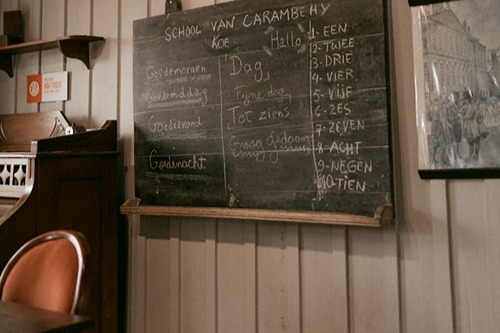 SCHOOL VAN CARAMBEHY
KOE Hallo
Goedemorgen
Goedemiddag
Goedeavond
Goedenacht
Dag,
Fyne dag
Tot ziens
Graag gedaan
1- EEN
2- TWEE
3- DRIE
4- VIER
5- VIJF
6- ZES
7- ZEVEN
8- ACHT
9- NEGEN
10- TIEN